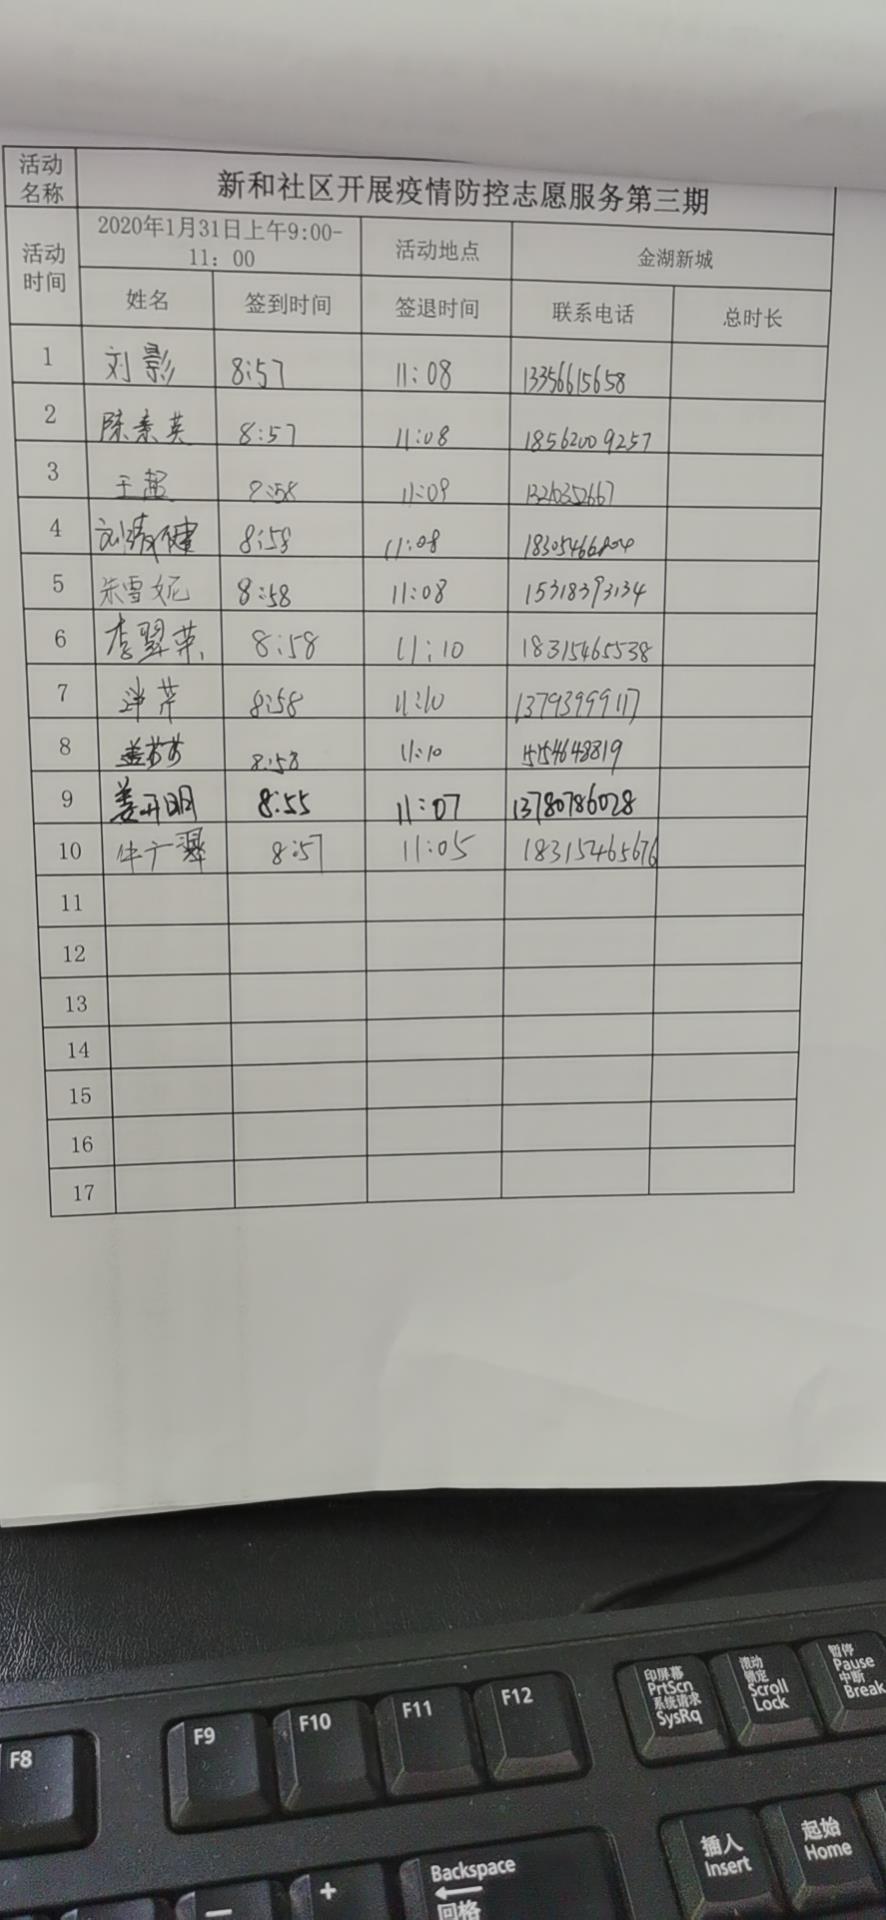 活动名称 新和社区开展疫情防控志愿服务第三期
活动时间 2020年1月31日上午9:00-11：00 活动地点 金湖新城
姓名 签到时间 签退时间 联系电话 总时长
1 刘影 8:57 11:08 13356615658
2 陈素英 8:57 11:08 18562009257
3 王超 8:58 11:09
4 8:58 11:08
5 朱雪妮 8:58 11:08 15318393134
6 李翠荣 8:58 11:10 18315465538
7 8:58 11:10 13793999117
8 盖芬芬 8:58 11:10 15154648819
9 姜开明 8:55 11:07 13780786028
10 牛广翠 8:57 11:05 18315465676
11
12
13
14
15
16
17
F8
F9
F10
F11
F12
印屏幕
PrtScn
系统请求
SysRq
滚动
锁定
Scroll
Lock
暂停
Pause
中断
Break
插入
Insert
起始
Home
－
+
Backspace
回格